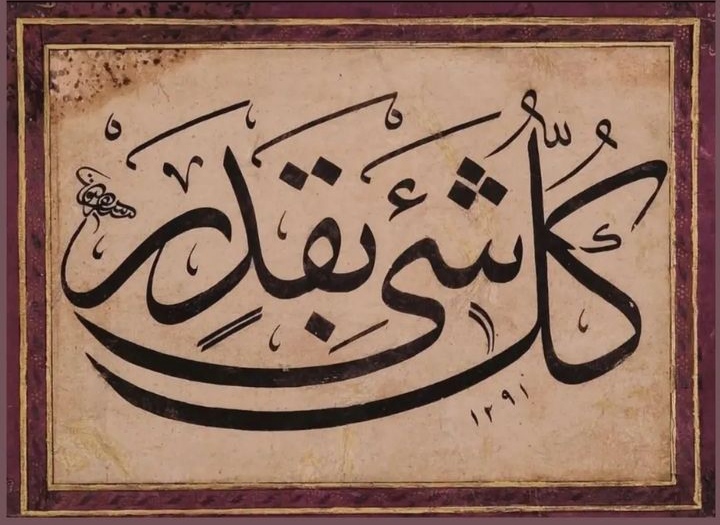 كُلُّ شَئٍ بِقَدَرٍ
١٢٩١